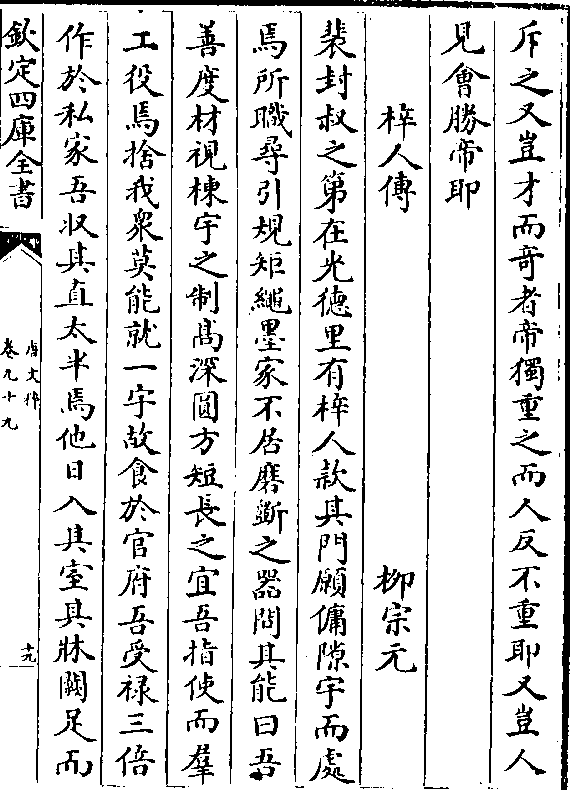 斥之又豈才而竒者帝獨重之而人反不重耶又豈人
見會勝帝耶
梓人傳 柳宗元
裴封叔之第在光德里有梓人款其門願傭隙宇而處
焉所職尋引規矩繩墨家不居磨斲之器問其能曰吾
善度材視棟宇之制髙深圓方短長之宜吾指使而羣
工役焉捨我衆莫能就一宇故食於官府吾受禄三倍
作於私家吾収其直太半焉他日入其室其牀闕足而
欽定四庫全書
唐文粹
卷九十九
十九